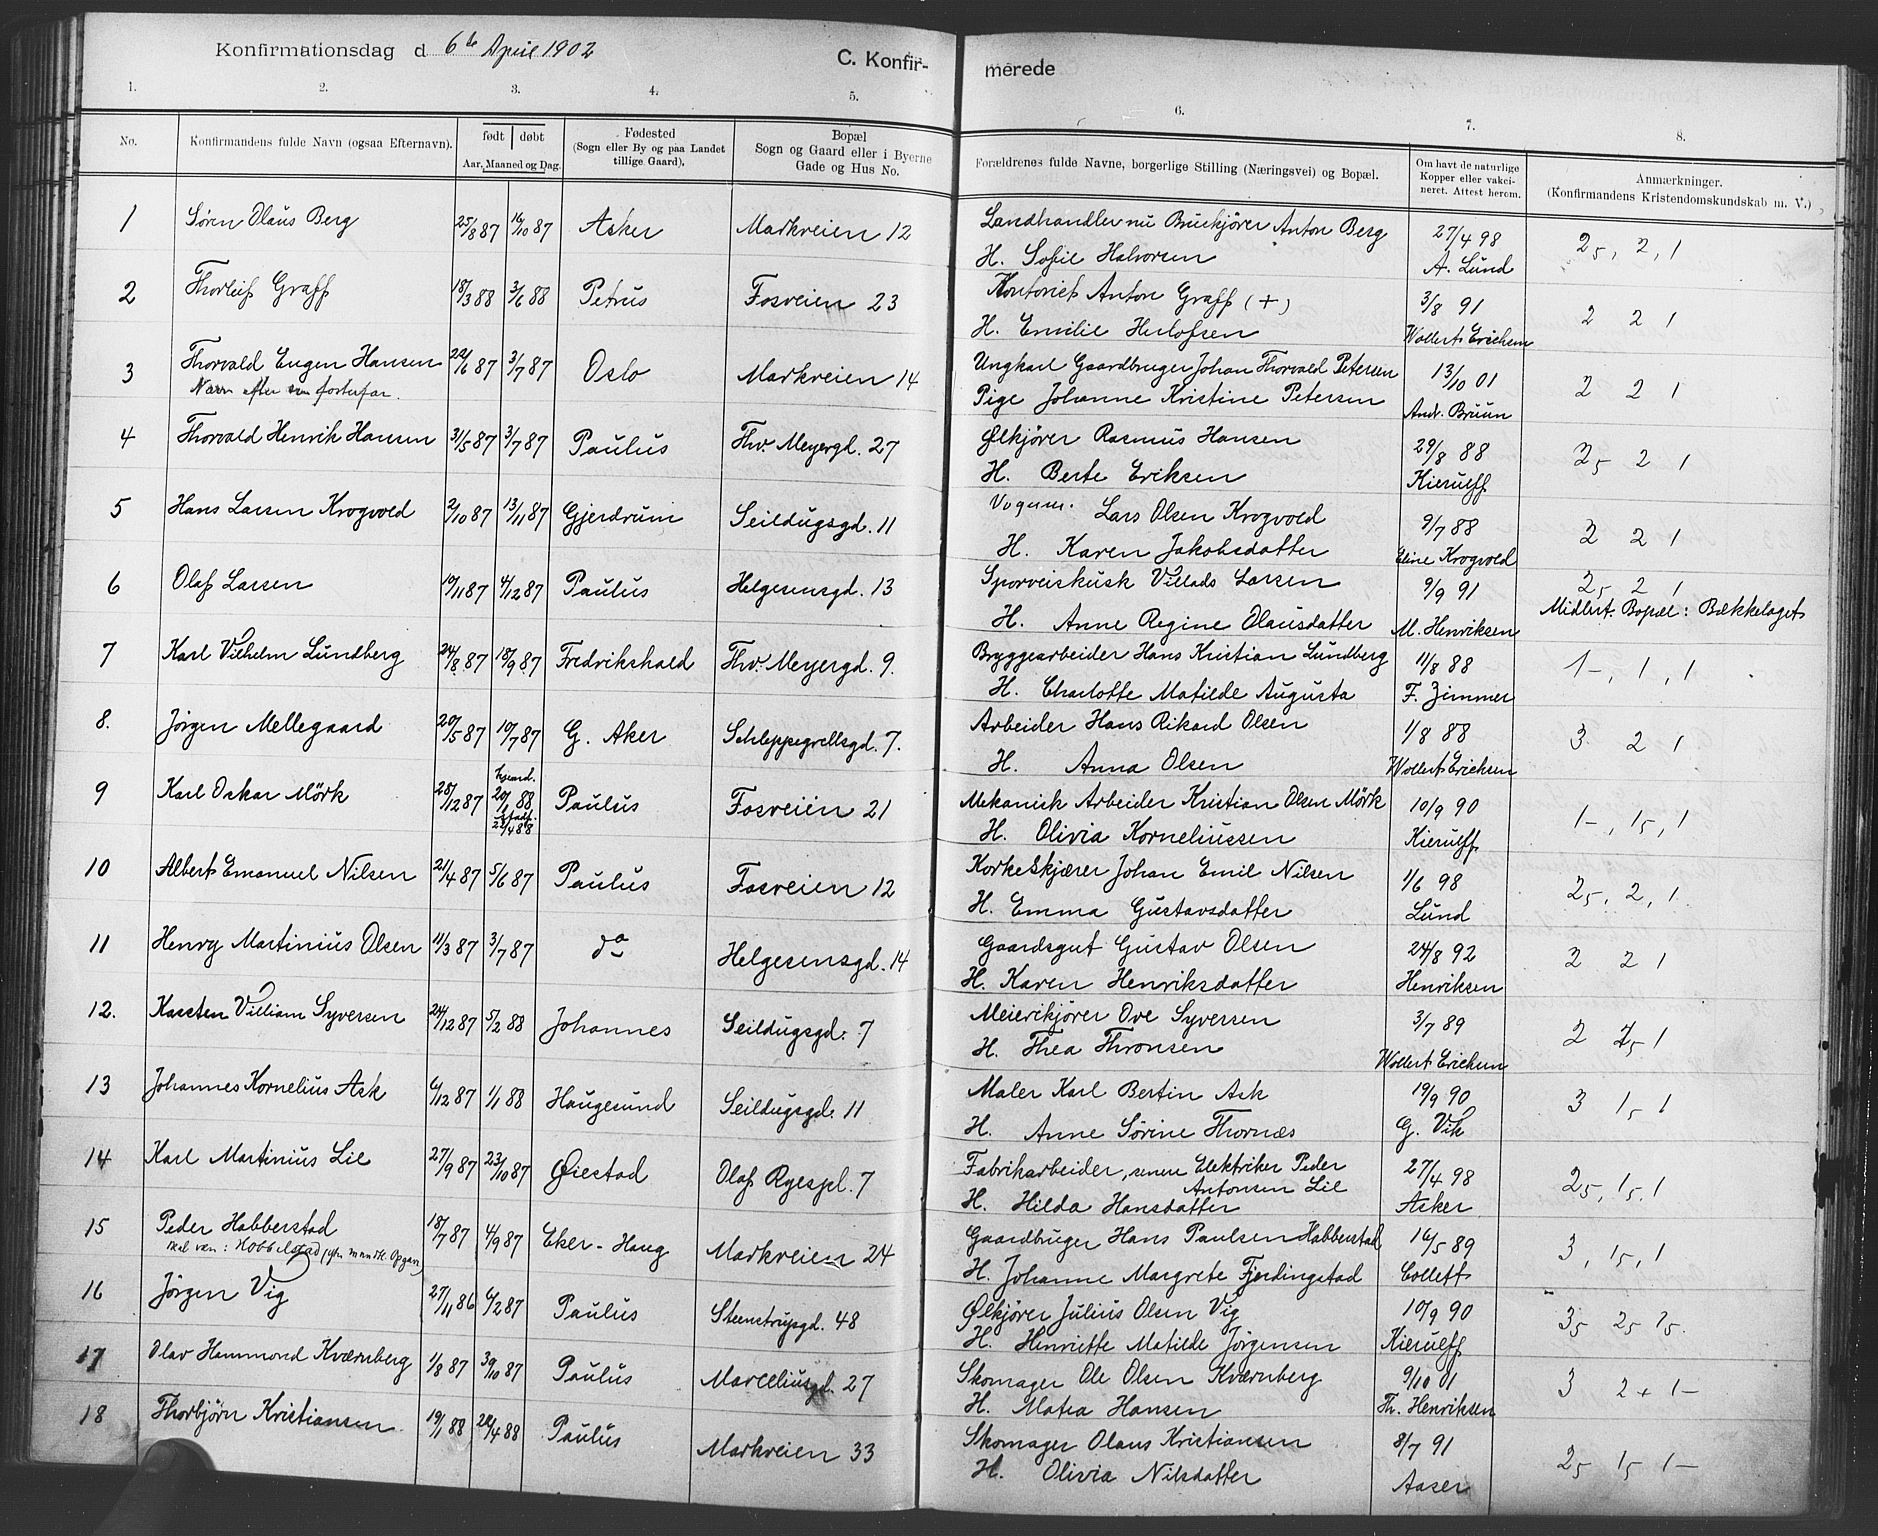 Konfirmationsdag d 6te April 1902
C. Konfir-
merede
1. 2. 3. 4. 5. 6. 7. 8.
No.
Konfirmandens fulde Navn (ogsaa Efternavn).
født døbt
Aar, Maaned og Dag.
Fødested
(Sogn eller By og paa Landet
tillige Gaard).
Bopæl
Sogn og Gaard eller i Byerne
Gade og Hus No.
Forældrenes fulde Navne, borgerlige Stilling (Næringsvei) og Bopæl.
Om havt de naturlige
Kopper eller vakci-
neret. Attest herom.
Anmærkninger.
(Konfirmandens Kristendomskundskab m. V.)
1 Søren Olaus Berg 25/8 87 16/10 87 Asker Markveien 12 Landhandler nu Bruskjører Anton Berg 27/4 98 25, 2, 1
H. Sofie Halvorsen A. Lund
2 Thorleif Graff 18/3 88 3/6 88 Petrus Fosveien 23 Kontorist Anton Graff (+) 3/8 91 2 2 1
H. Emilie Herlofsen Wollert Erichsen
3 Thorvald Eugen Hansen 22/6 87 3/7 87 Oslo Markveien 14 Ungkarl Gaardbruger Johan Thorvald Petersen 13/10 01 2 2 1
Navn efter sin fosterfar. Pige Johanne Kristine Petersen Andr. Bruun
4 Thorvald Henrik Hansen 31/5 87 3/7 87 Paulus Thv. Meyergd. 27 Ølkjører Rasmus Hansen 29/8 88 25 2 1
H. Berte Eriksen Kierulff
5 Hans Larsen Krogvold 2/10 87 13/11 87 Gjerdrum Seildugsgd. 11 Vognm. Lars Olsen Krogvold 9/7 88 2 2 1
H. Karen Jakobsdatter Eline Krogvold
6 Olaf Larsen 19/11 87 4/12 87 Paulus Helgesensgd. 13 Sporveiskusk Villads Larsen 9/9 91 25 2 1
H. Anne Regine Olausdatter M. Henriksen Midlert. Bopæl: Bækkelaget
7 Karl Vilhelm Lundberg 24/8 87 18/9 87 Fredrikshald Thv. Meyergd. 9. Bryggearbeider Hans Kristian Lundberg 11/8 88 1-, 1, 1
H. Charlotte Matilde Augusta F. Zimmer
8. Jørgen Mellegaard 20/5 87 10/7 87 G. Aker Schleppegrellsgd. 7. Arbeider Hans Rikard Olsen 1/8 88 3 2 1
H. Anna Olsen Wollert Erichsen
9 Karl Oskar Mörk 28/12 87 hjemd. 20/1 88 stadf. 22/4 88 Paulus Fosveien 21 Mekanisk Arbeider Kristian Olsen Mörk 10/9 90 1-, 15, 1
H. Olivia Korneliussen Kierulff
10 Albert Emanuel Nilsen 21/4 87 5/6 87 Paulus Fosveien 12 Korkeskjærer Johan Emil Nilsen 1/6 98 25, 2, 1.
H. Emma Gustavsdatter Lund
11 Henry Martinius Olsen 11/3 87 3/7 87 do Helgesensgd. 14 Gaardsgut Gustav Olsen 24/8 92 2 2 1
H. Karen Henriksdatter Henriksen
12. Karsten Villiam Syversen 24/12 87 5/2 88 Johannes Seildugsgd. 7 Meierikjører Ove Syversen 3/7 89 2 25 1
H. Thea Thronsen Wollert Erichsen
13 Johannes Kornelius Ask 6/12 87 1/1 88 Haugesund Seildugsgd. 11 Maler Karl Bertin Ask 19/9 90 3 15 1
H. Anne Sørine Thornæs G. Vik
14 Karl Martinius Lie 27/9 87 23/10 87 Øiestad Olaf Ryespl. 7 Fabrikarbeider, senen Elektriker Peder 27/4 98 25, 15, 1
Antonsen Lie
H. Hilda Hansdatter Asker
15 Peder Habberstad 18/7 87 4/9 87 Eker-Haug Markveien 24 Gaardbruger Hans Paulsen Habberstad 16/5 89 3, 15, 1
H. Johanne Margrete Fjerdingstad Collett
16 Jørgen Vig 27/11 86 6/2 87 Paulus Steenstrupsgd. 48 Ølkjører Julius Olsen Vig 10/9 90 35 25 15.
H. Henriette Matilde Jørgensen Kierulff
17 Olav Hammond Kværnberg 1/8 87 30/10 87 Paulus Marceliusgd. 27 Skomager Ole Olsen Kværnberg 9/10 01 3 2+ 1-
H. Matea Hansen Th. Henriksen
18 Thorbjørn Kristiansen 19/1 88 22/4 88 Paulus Markveien 33 Skomager Olaus Kristiansen 8/7 91 25 15 1-
H. Olivia Nilsdatter Aaser